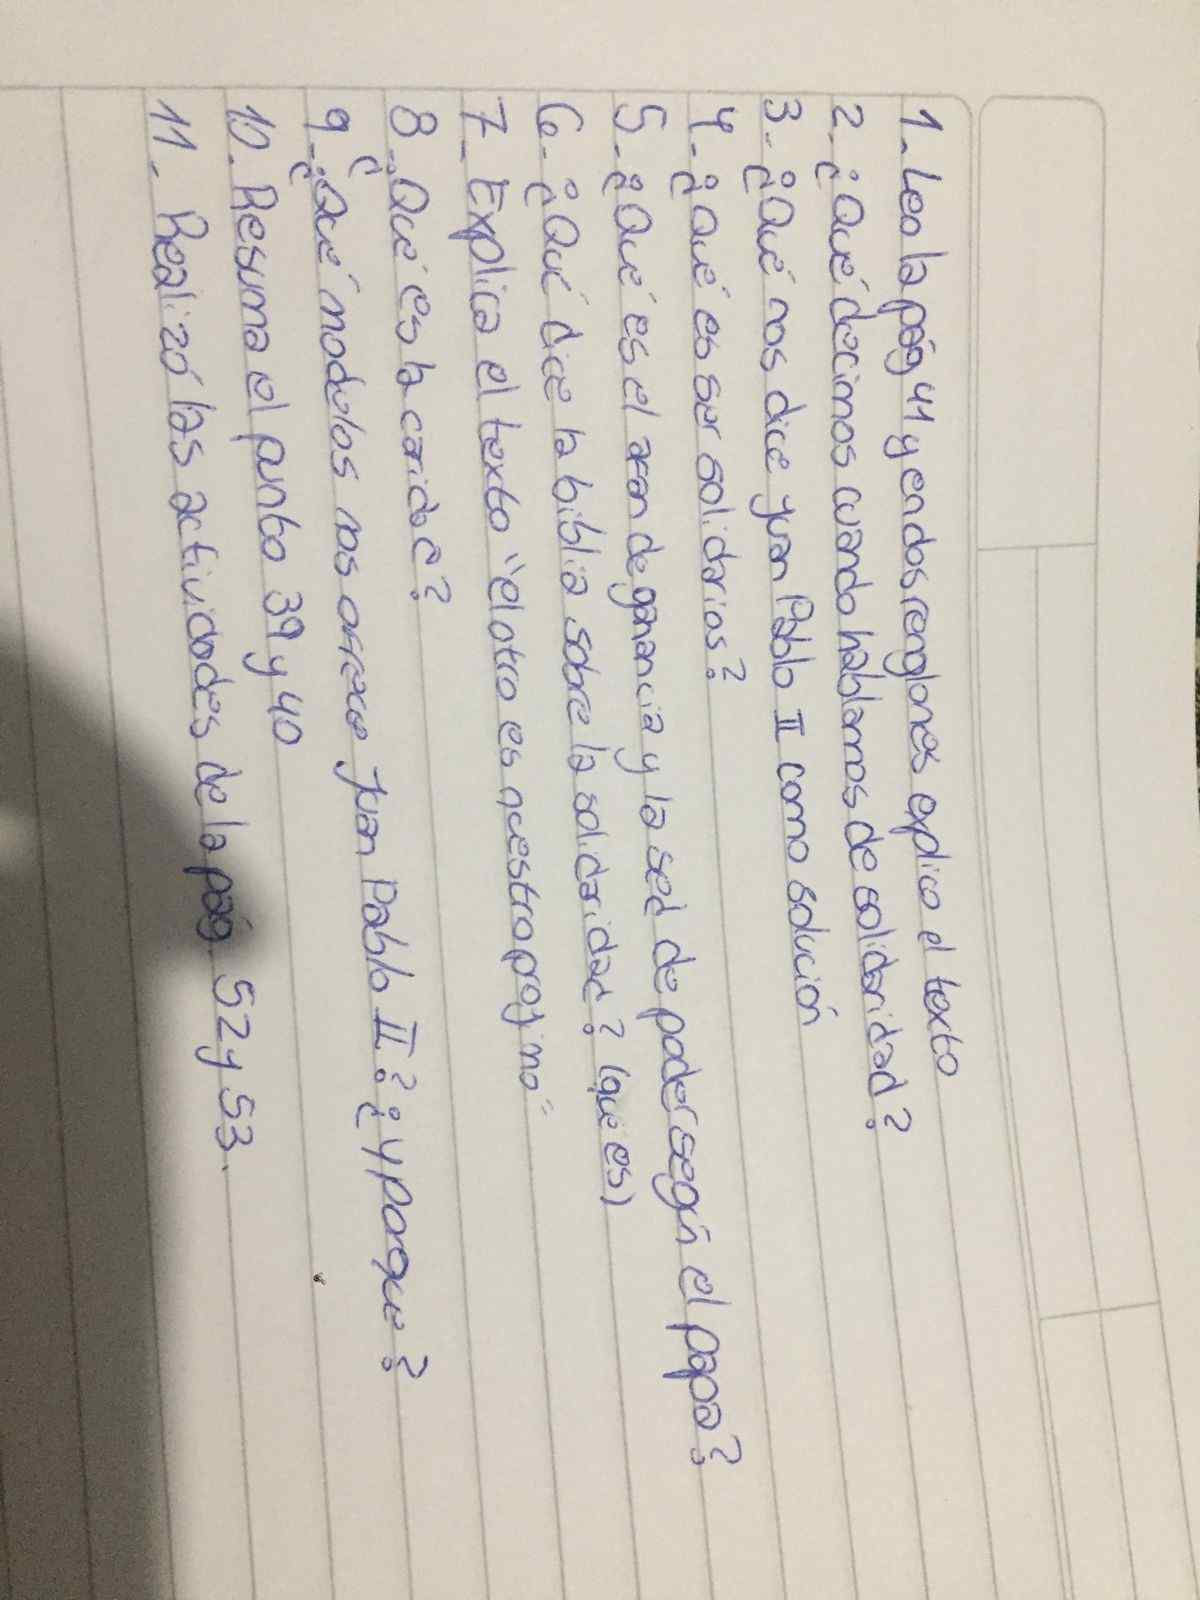 1- Lea la pág 41 y en dos renglones explico el texto
2- ¿Qué decimos cuando hablamos de solidaridad?
3- ¿Qué nos dice Juan Pablo II como solución
4- ¿Qué es ser solidarios?
5- ¿Qué es el afan de ganancia y la sed de poder según el papa?
6- ¿Qué dice la biblia sobre la solidaridad? (que es)
7- Explica el texto "el otro es nuestro projimo"
8- ¿Qué es la caridad?
9- ¿Qué modelos nos ofrece Juan Pablo II? ¿y porque?
10- Resuma el punto 39 y 40
11- Realizó las actividades de la pág. 52 y 53.